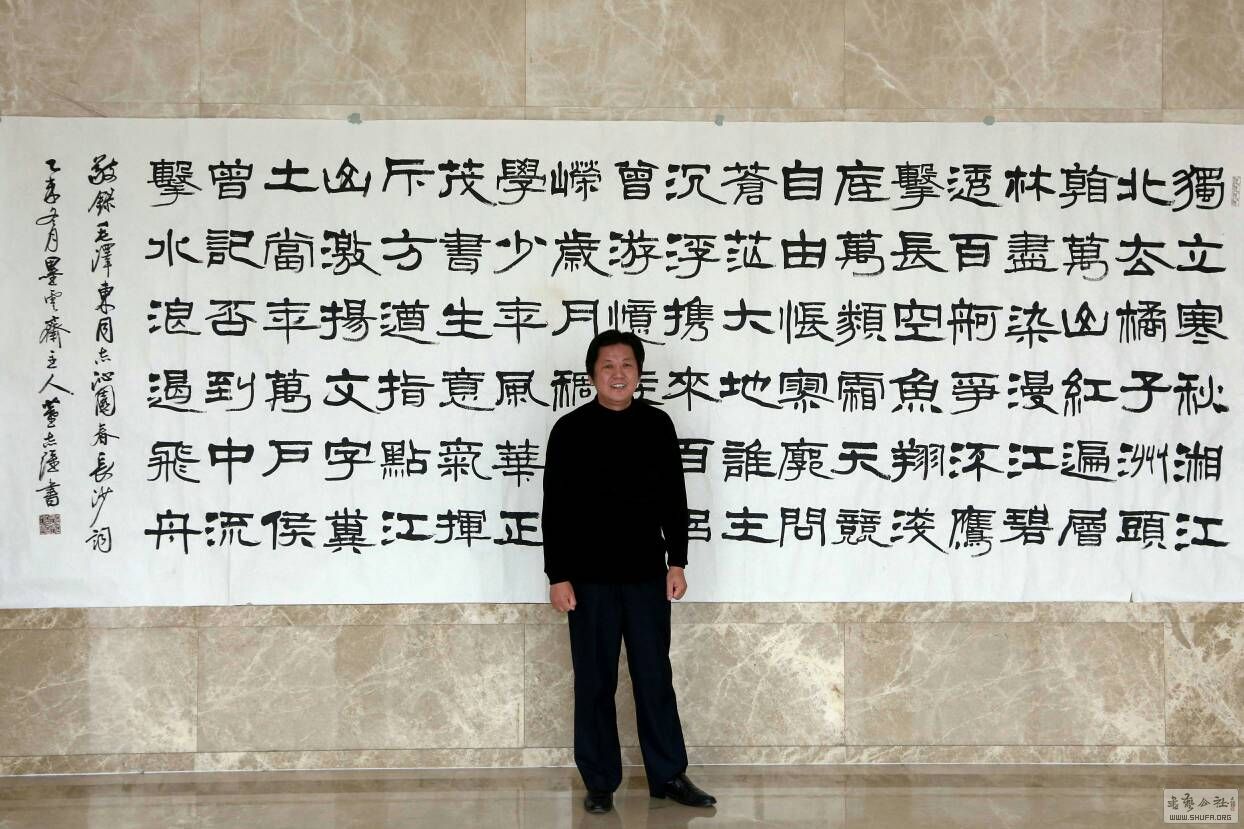 獨立寒秋湘江
北去橘子洲頭
看萬山紅遍層
林盡染漫江碧
透百舸爭流鷹
擊長空魚翔淺
底萬類霜天競
自由悵寥廓問
蒼茫大地誰主
沉浮携來百
曾游憶
嶸歲月稠
學少年風華正
茂書生意氣揮
斥方遒指點江
山激揚文字糞
土當年萬戶侯
曾記否到中流
擊水浪遏飛舟
敬錄毛澤東同志沁園春長沙詞
月墨雲齋主人董志强書
書藝公社
WWW.SHUFA.ORG